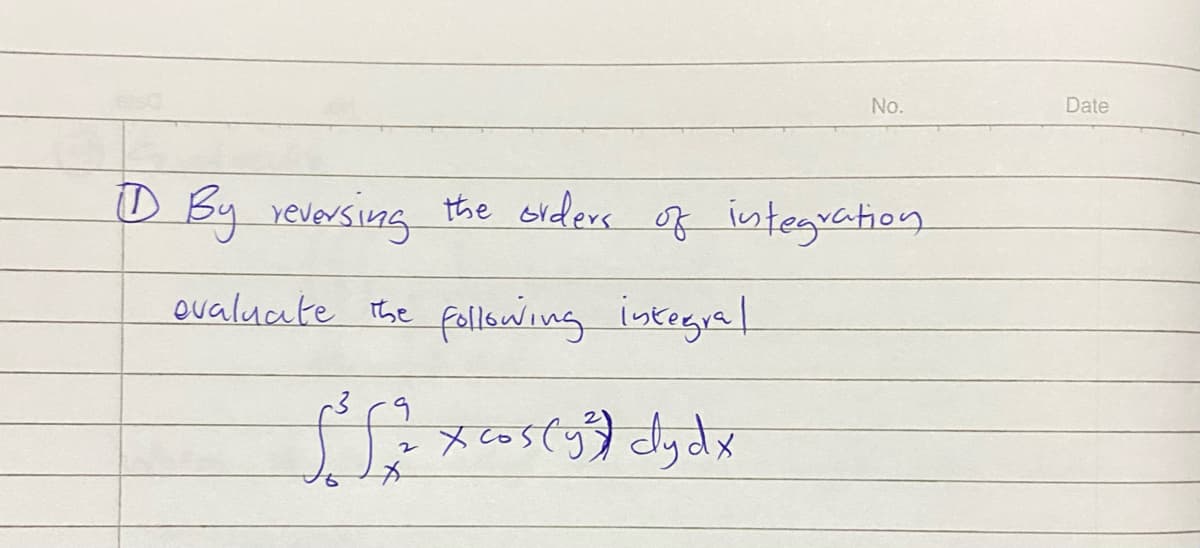 No. Date
① By reversing the orders of integration
evaluate the following integral
∫₀³ ∫ₓ²⁹ x cos(y²) dy dx